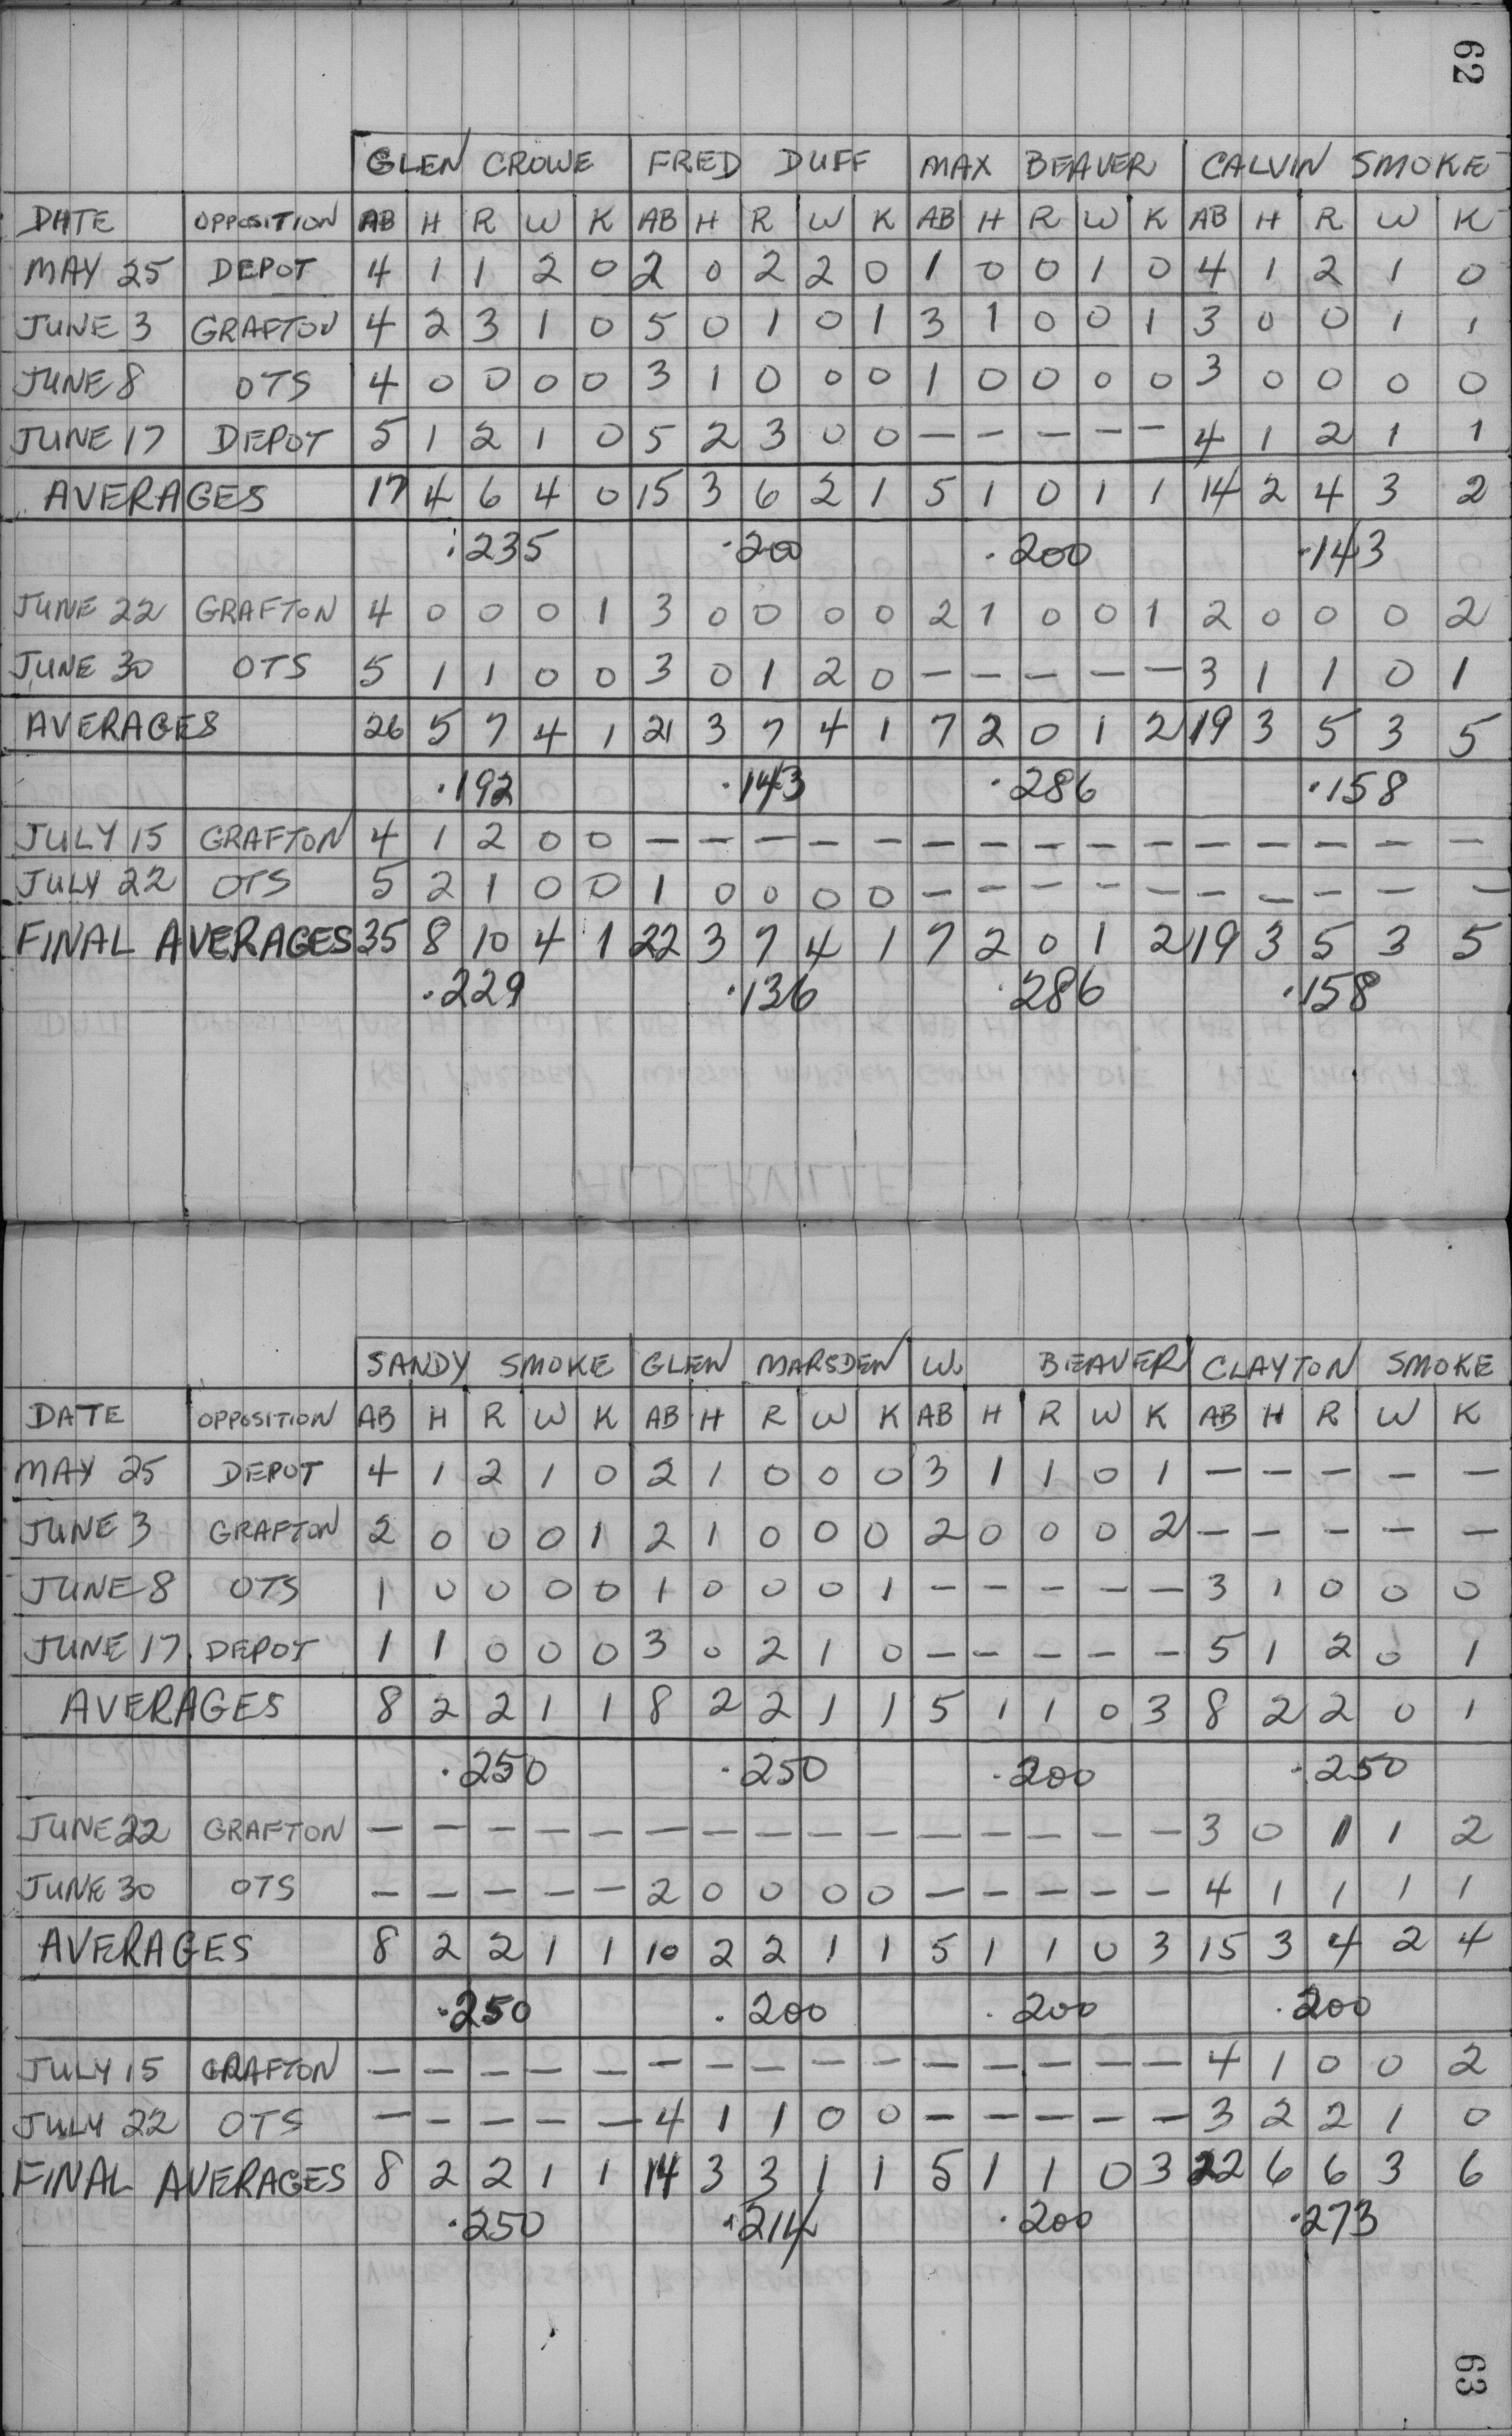 62
GLEN CROWE FRED DUFF MAX BEAVER CALVIN SMOKE
DATE OPPOSITION AB H R W K AB H R W K AB H R W K AB H R W K
MAY 25 DEPOT 4 1 1 2 0 2 0 2 2 0 1 0 0 1 0 4 1 2 1 0
JUNE 3 GRAFTON 4 2 3 1 0 5 0 1 0 1 3 1 0 0 1 3 0 0 1 1
JUNE 8 OTS 4 0 0 0 0 3 1 0 0 0 1 0 0 0 0 3 0 0 0 0
JUNE 17 DEPOT 5 1 2 1 0 5 2 3 0 0 - - - - - 4 1 2 1 1
AVERAGES 17 4 6 4 0 15 3 6 2 1 5 1 0 1 1 14 2 4 3 2
.235 .200 .200 .143
JUNE 22 GRAFTON 4 0 0 0 1 3 0 0 0 0 2 1 0 0 1 2 0 0 0 2
JUNE 30 OTS 5 1 1 0 0 3 0 1 2 0 - - - - - 3 1 1 0 1
AVERAGES 26 5 7 4 1 21 3 7 4 1 7 2 0 1 2 19 3 5 3 5
.192 .143 .286 .158
JULY 15 GRAFTON 4 1 2 0 0 - - - - - - - - - - - - - - -
JULY 22 OTS 5 2 1 0 0 1 0 0 0 0 - - - - - - - - - -
FINAL AVERAGES 35 8 10 4 1 22 3 7 4 1 7 2 0 1 2 19 3 5 3 5
.229 .136 .286 .158
SANDY SMOKE GLEN MARSDEN W. BEAVER CLAYTON SMOKE
DATE OPPOSITION AB H R W K AB H R W K AB H R W K AB H R W K
MAY 25 DEPOT 4 1 2 1 0 2 1 0 0 0 3 1 1 0 1 - - - - -
JUNE 3 GRAFTON 2 0 0 0 1 2 1 0 0 0 2 0 0 0 2 - - - - -
JUNE 8 OTS 1 0 0 0 0 1 0 0 0 1 - - - - - 3 1 0 0 0
JUNE 17 DEPOT 1 1 0 0 0 3 0 2 1 0 - - - - - 5 1 2 0 1
AVERAGES 8 2 2 1 1 8 2 2 1 1 5 1 1 0 3 8 2 2 0 1
.250 .250 .200 .250
JUNE 22 GRAFTON - - - - - - - - - - - - - - - 3 0 1 1 2
JUNE 30 OTS - - - - - 2 0 0 0 0 - - - - - 4 1 1 1 1
AVERAGES 8 2 2 1 1 10 2 2 1 1 5 1 1 0 3 15 3 4 2 4
.250 .200 .200 .200
JULY 15 GRAFTON - - - - - - - - - - - - - - - 4 1 0 0 2
JULY 22 OTS - - - - - 4 1 1 0 0 - - - - - 3 2 2 1 0
FINAL AVERAGES 8 2 2 1 1 14 3 3 1 1 5 1 1 0 3 22 6 6 3 6
.250 .214 .200 .273
63